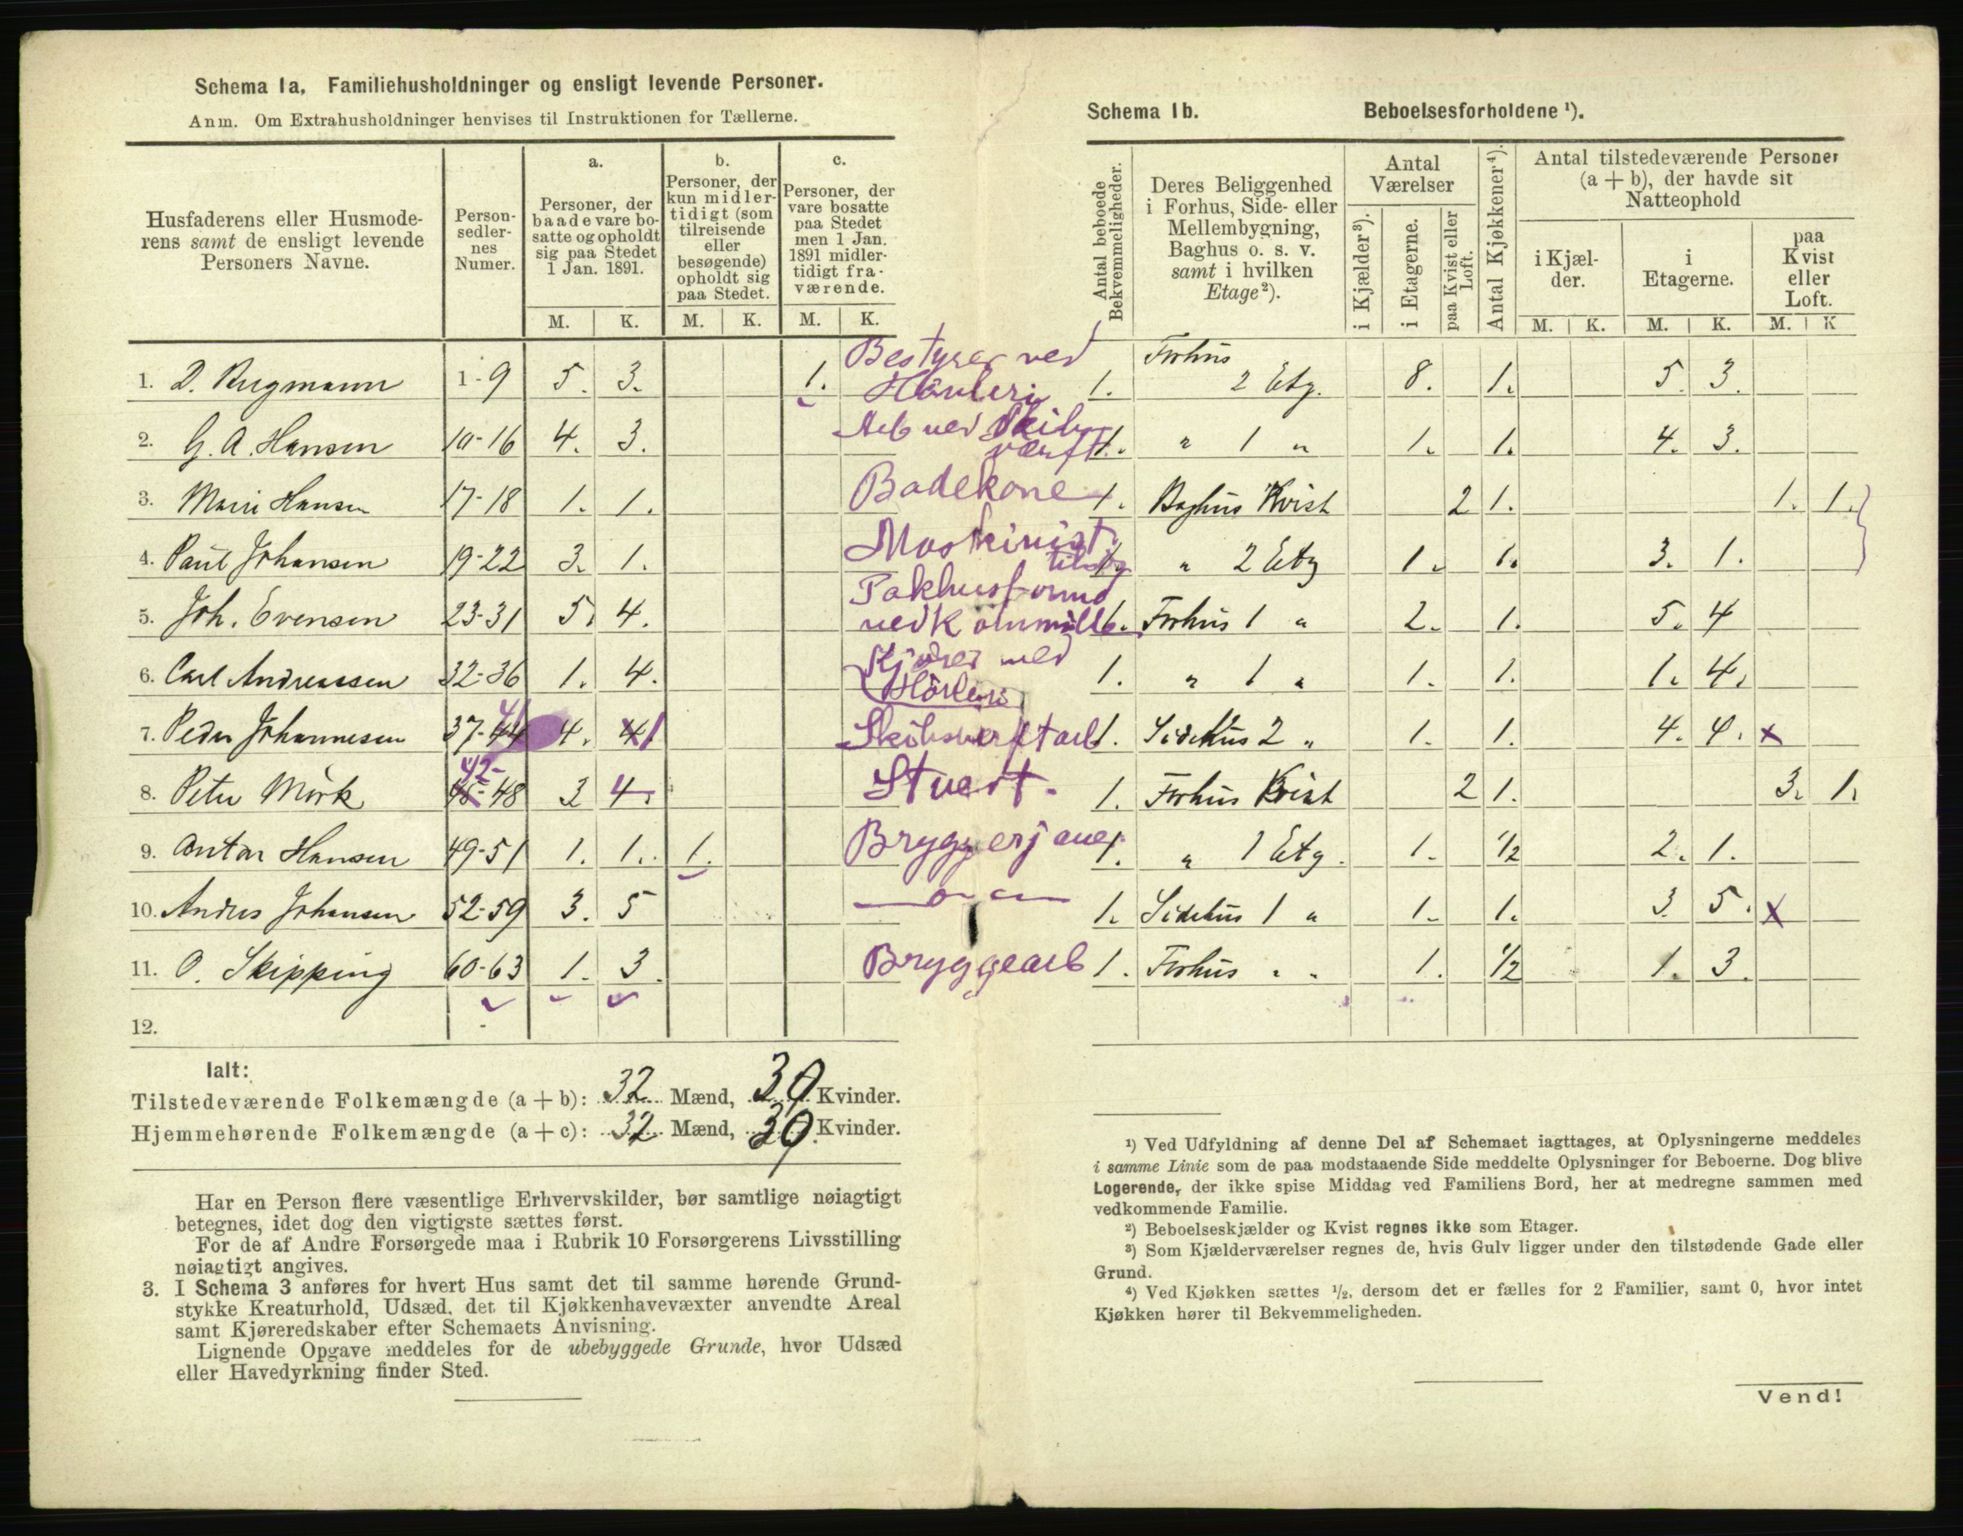 Schema 1a. Familiehusholdninger og ensligt levende Personer.
Anm. Om Extrahusholdninger henvises til Instruktionen for Tællerne.
Husfaderens eller Husmoderens samt de ensligt levende Personers Navne.
Personsedlernes Numer.
a. Personer, der baade vare bosatte og opholdt sig paa Stedet 1 Jan. 1891.
b. Personer, der kun midlertidigt (som tilreisende eller besøgende) opholdt sig paa Stedet.
c. Personer, der vare bosatte paa Stedet men 1 Jan. 1891 midlertidigt fraværende.
M. K. M. K. M. K.
1. D. Rugmann 1-9 5. 3. 1. Bestyrer ved Hövleri
2. G. A. Hansen 10-16 4. 3. Arb ved Skibsværft
3. Marie Hansen 17-18 1. 1. Badekone
4. Paul Johansen 19-22 3. 1. Maskinist tilsøs
5. Joh. Evensen 23-31 5. 4. Pakhusformd ved Kornmølle
6. Carl Andreassen 32-36 1. 4. Kjører ved Hövleri
7. Peder Johannesen 37-44 41 4. 4. 1 Skibsverftarb
8. Peter Mörk 45-48 42- 3 4. Stuert.
9. Anton Hansen 49-51 1. 1. 1. Bryggerj
10. Andres Johansen 52-59 3. 5
11. O. Skipping 60-63 1. 3. Bryggearb
12.
Ialt:
Tilstedeværende Folkemængde (a + b): 32 Mænd, 30 Kvinder.
Hjemmehørende Folkemængde (a + c): 32 Mænd, 30 Kvinder.
Har en Person flere væsentlige Erhvervskilder, bør samtlige nøiagtigt
betegnes, idet dog den vigtigste sættes først.
For de af Andre Forsørgede maa i Rubrik 10 Forsørgerens Livsstilling
nøiagtigt angives.
3. I Schema 3 anføres for hvert Hus samt det til samme hørende Grund-
stykke Kreaturhold, Udsæd, det til Kjøkkenhavevæxter anvendte Areal
samt Kjøreredskaber efter Schemaets Anvisning.
Lignende Opgave meddeles for de ubebyggede Grunde, hvor Udsæd
eller Havedyrkning finder Sted.
Schema 1b. Beboelsesforholdene ¹).
Antal beboede Bekvemmeligheder.
Deres Beliggenhed i Forhus, Side- eller Mellembygning, Baghus o. s. v. samt i hvilken Etage²).
Antal Værelser
i Kjælder³). i Etagerne. paa Kvist eller Loft.
Antal Kjøkkener⁴).
Antal tilstedeværende Personer (a + b), der havde sit Natteophold
i Kjælder. i Etagerne. paa Kvist eller Loft.
M. K. M. K. M. K
1. Forhus 2 Etg. 8. 1. 5. 3.
1. " 1 " 1. 1. 4. 3.
1. Baghus Kvist 2 1. 1. 1.
1. " 2 Etg 1. 1. 3. 1.
1. Forhus 1 " 2. 1. 5. 4
1. " 1 " 1. 1. 1. 4.
1. Sidehus 2 " 1. 1. 4. 4. x
1. Forhus Kvist 2 1. 3. 1.
1. " 1 Etg. 1. 1/2 2. 1.
1. Sidehus 1 " 1. 1. 3. 5. x
1. Forhus " " 1. 1/2 1. 3.
¹) Ved Udfyldning af denne Del af Schemaet iagttages, at Oplysningerne meddeles
i samme Linie som de paa modstaaende Side meddelte Oplysninger for Beboerne. Dog blive
Logerende, der ikke spise Middag ved Familiens Bord, her at medregne sammen med
vedkommende Familie.
²) Beboelseskjælder og Kvist regnes ikke som Etager.
³) Som Kjælderværelser regnes de, hvis Gulv ligger under den tilstødende Gade eller
Grund.
⁴) Ved Kjøkken sættes ½, dersom det er fælles for 2 Familier, samt 0, hvor intet
Kjøkken hører til Bekvemmeligheden.
Vend!